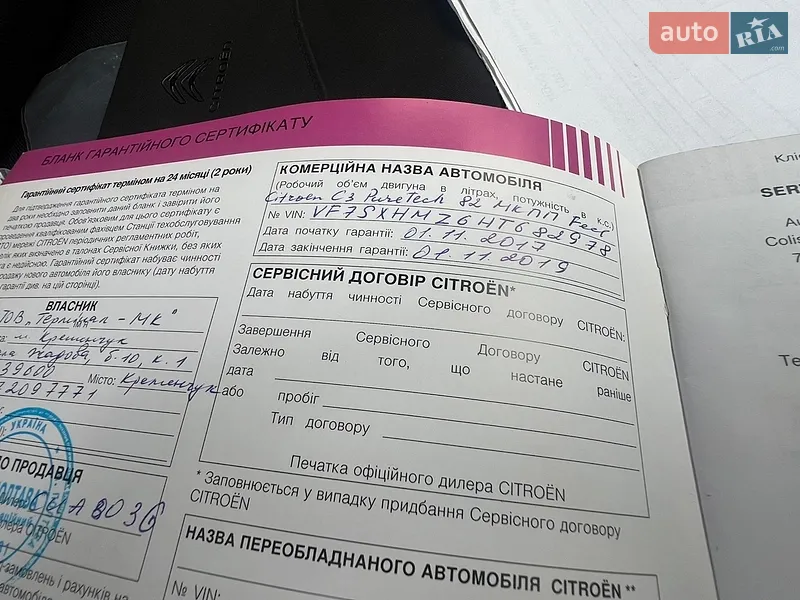 auto RIA
.com
CITROËN
БЛАНК ГАРАНТІЙНОГО СЕРТИФІКАТУ
Гарантійний сертифікат терміном на 24 місяці (2 роки)
Для підтвердження гарантійного сертифікату терміном на
два роки необхідно заповнити даний бланк і завірити його
печаткою продавця. Обов'язковим для цього сертифікату є
проведення кваліфікованим фахівцем Станції техобслуговування
ТО) мережі CITROËN періодичних регламентних робіт,
лік яких визначено в талонах Сервісної Книжки, без яких
є недійсною. Гарантійний сертифікат набуває чинності
продажу нового автомобіля його власнику (дату набуття
гарантії див. на цій сторінці).
ВЛАСНИК
ТОВ „Термінал - МК"
м. Кременчук
Жадова, б. 10, к. 1
39600 Місто: Кременчук
2097771
УКРАЇНА
ПРОДАВЦЯ
CITROËN
КОМЕРЦІЙНА НАЗВА АВТОМОБІЛЯ
(Робочий об'єм двигуна в літрах, потужність в к.с.)
Citroen C3 PureTech 82 МКПП Feel
№ VIN: VF7SXHMZ6HT682978
Дата початку гарантії: 01.11.2017
Дата закінчення гарантії: 01.11.2019
СЕРВІСНИЙ ДОГОВІР CITROËN*
Дата набуття чинності Сервісного договору CITROËN:
Завершення Сервісного Договору CITROËN
Залежно від того, що настане раніше
дата
або
пробіг
Тип договору
Печатка офіційного дилера CITROËN
* Заповнюється у випадку придбання Сервісного договору
CITROËN
НАЗВА ПЕРЕОБЛАДНАНОГО АВТОМОБІЛЯ CITROËN **
№ VIN: